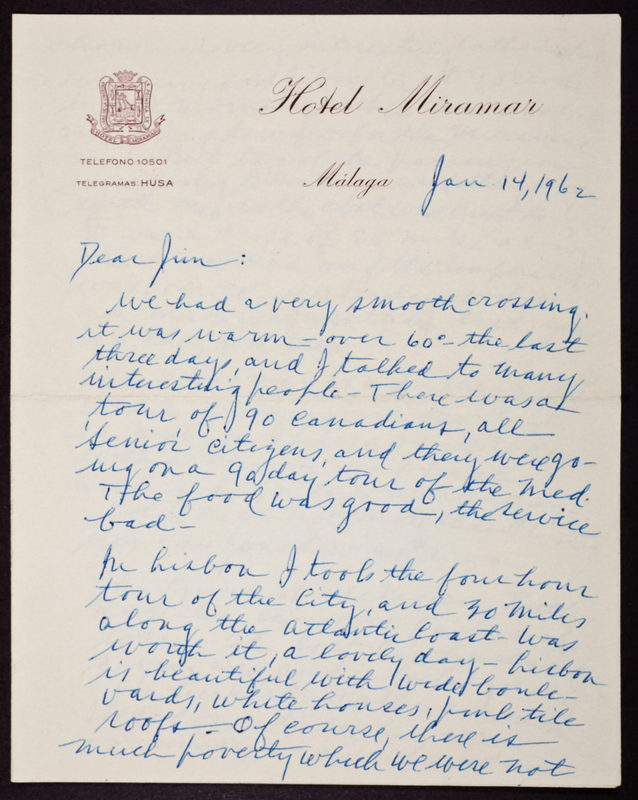 Hotel Miramar
HOTEL MIRAMAR
TELEFONO 10501
TELEGRAMAS: HUSA
Málaga Jan. 14, 1962
Dear Jim:
We had a very smooth crossing.
it was warm - over 60° - the last
three days, and I talked to many
interesting people - There was a
tour, of 90 Canadians, all
senior citizens, and they were go-
ing on a 90 day tour of the Med.
The food was good, the service
bad -
In Lisbon I took the four hour
tour of the city, and 30 miles
along the Atlantic Coast - was
worth it, a lovely day - Lisbon
is beautiful with wide boule-
vards, white houses, pink tile
roofs - Of course, there is
much poverty which we were not